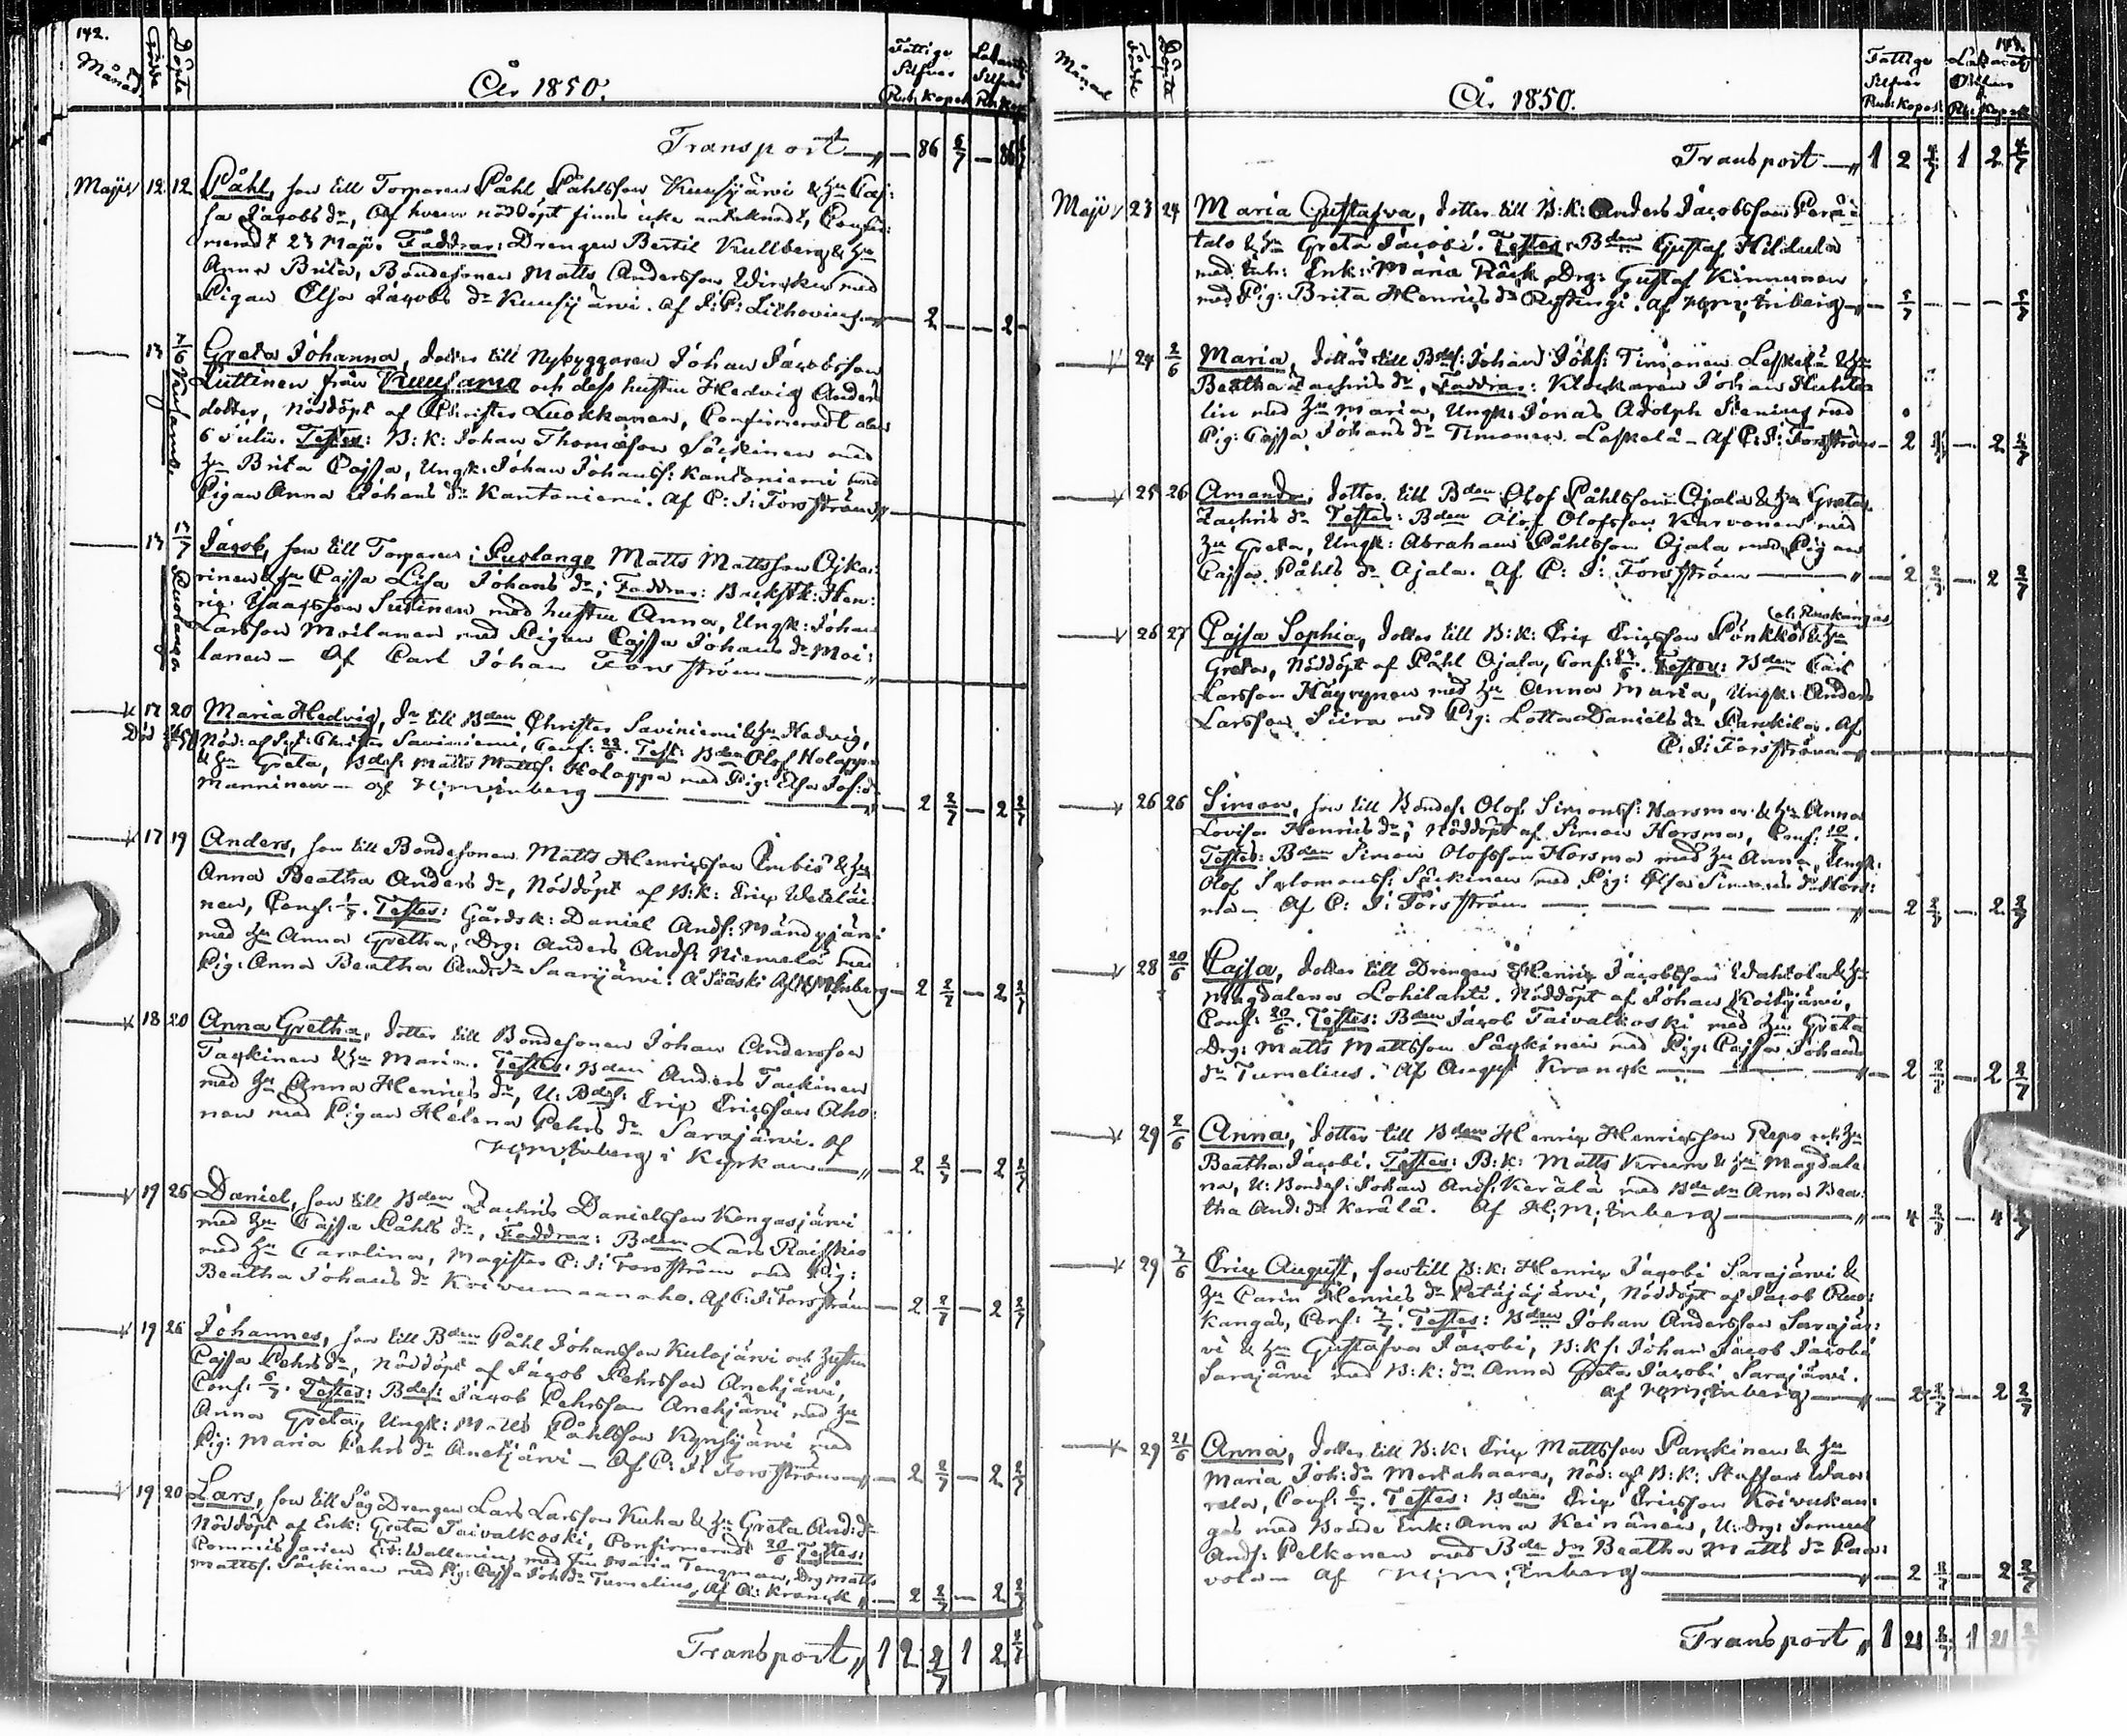 142.
Månad. Födde Döpte
År 1850.
Fattige Silfver Rub. Kopek
Silfver Rb. Kop.
Transport — 86 — 86
Majus 12 12 Påhl, son till Torparen Påhl Påhlsson Kuusijärvi & Hu Caj:
sa Jacobs dr, Af hvem nöddöpt finns icke antecknadt, Confir:
merad d 23 Maji. Faddrar: Drengen Bertil Kullberg & Hu
Anna Brita, Bondesonen Matts Andersson med
Pigan Elsa Jacobs dr Kuusijärvi. Af 2 — 2
13 Greta Johanna, dotter till Nybyggaren Johan Jacobsson
Luttinen från Kuusamo och dess hustru Hedvig Anders
dotter, Nöddöpt af Christer Luokkanen, Confirmeradt
6 Julii. Testes: B:k: Johan Thomasson Säckinen med
Hu Brita Cajsa, Ungk: Johan Johanss: Kantoniemi med
Pigan Anna Johans dr Kantoniemi. Af C: J: Forsström
13 Jacob, son till Torparen i Puolango Matts Mattsson Ojka:
rinen & Hu Cajsa Lisa Johans dr; Faddrar: Backstk: Hen:
ric Isaacsson Sutinen med hustru Anna, Ungk: Johan
Larsson Moilanen med Pigan Cajsa Johans dr Moi:
lanen — Af Carl Johan Forsström
17 20 Maria Hedvig, dr till Bden Christer Saviniemi & Hu Hedvig,
Död Nöd: af Christer Saviniemi, Conf: Test: Bden Olof Holappa
& Hu Greta, Bdes: Matts Mattss: Holappa med Pig: Elsa Jos: dr
Manninen — af H: M: Enberg 2 2/7 — 2 2/7
17 19 Anders, son till Bondesonen Matts Henricsson & Hu
Anna Beatha Anders dr, Nöddöpt af B:k: Eric Weteläi:
nen, Conf: Testes: Gårdsk: Daniel Ands: Mändyjärvi
med Hu Anna Gretha, Drg: Anders Ands: Niemelä med
Pig: Anna Beatha And: dr Saarijärvi. Af H: M: Enberg — 2 2/7 — 2 2/7
18 20 Anna Gretha, dotter till Bondesonen Johan Andersson
Tackinen & Hu Maria. Testes: Bden Anders Tackinen
med Hu Anna Henrics dr, U: Bdes: Eric Ericsson Aho:
nen med Pigan Helena Pehrs dr Sarajärvi. Af
H: M: Enberg i Kyrkan — 2 2/7 — 2 2/7
19 26 Daniel, son till Bden Zachris Danielsson Kongasjärvi
med Hu Cajsa Påhls dr, Faddrar: Bden Lars Raiskio
med Hu Carolina, Magister C: J: Forsström med Pig:
Beatha Johans dr Koivumaanaho. Af C: J: Forsström — 2 2/7 — 2 2/7
19 26 Johannes, son till Bden Påhl Johansson Kulojärvi och hustru
Cajsa Pehrs dr, Nöddöpt af Jacob Pehrsson Anehjärvi,
Conf: 6/7. Testes: Bdes: Jacob Pehrsson Anehjärvi med Hu
Anna Greta, Ungk: Matts Påhlsson Kynsijärvi med
Pig: Maria Pehrs dr Anehjärvi — Af C: J: Forsström — 2 2/7 — 2 2/7
19 20 Lars, son till Såg Drengen Lars Larsson Kuha & Hu Greta And: dr
Nöddöpt af Enk: Greta Taivalkoski, Confirmerad 20/6 Testes:
Commissarien Wallenius med Fru Maria Tengman, Drg Matts
Mattss: Säckinen med Pig: Cajsa Joh: dr Tumelius, Af A: Kranck — 2 2/7 — 2 2/7
Transport 1 2 2/7 1 2 2/7
143.
Månad Födde Döpte
År 1850.
Fattige Silfver Rub: Kopek
Transport 1 2 1 2
Majus 23 24 Maria Gustafva, dotter till B:k: Anders Jacobsson Perä:
talo & Hu Greta Jacobi. Testes: Bden Gustaf Hildula
med Enk: Maria Räck, Drg: Gustaf Kinnunen
med Pig: Brita Henrics dr Af H: M: Enberg
24 2/6 Maria, dotter till Bdes: Johan Johs: Timonen Leskelä & Hu
Beatha Zachris dr, Faddrar: Klockaren Johan Huhta:
lin med Hu Maria, Ungk: Jonas Adolph Stenius med
Pig: Cajsa Johans dr Timonen Leskelä — Af C: J: Forsström — 2 2/7 — 2 2/7
25 26 Amanda, dotter till Bden Olof Påhlsson Ojala & Hu Greta
Zachris dr Testes: Bden Olof Olofsson Karvonen med
Hu Greta, Ungk: Abraham Påhlsson Ojala med Pigan
Cajsa Påhls dr Ojala. Af C: J: Forsström — 2 2/7 — 2 2/7
26 27 Cajsa Sophia, dotter till B:k: Eric Ericsson Pönkkö & Hu
Greta, Nöddöpt af Påhl Ojala, Conf: Testes: Bden Carl
Larsson Häyrynen med Hu Anna Maria, Ungk: Anders
Larsson Siira med Pig: Lotta Daniels dr Parkkila. Af
C: J: Forsström
26 26 Simon, son till Bondes: Olof Simonss: Horsma & Hu Anna
Lovisa Henrics dr, Nöddöpt af Simon Horsma, Conf:
Testes: Bden Simon Olofsson Horsma med Hu Anna, Ungk:
Olof Salomonss: Säckinen med Pig: Elsa Simons dr Hors:
ma — Af C: J: Forsström — 2 2/7 — 2 2/7
28 20/6 Cajsa, dotter till Drengen Henric Jacobsson Wahtola & Hu
Magdalena Lohilahti. Nöddöpt af Johan Koitijärvi,
Conf: 20/6. Testes: Bden Jacob Taivalkoski med Hu Greta
Drg: Matts Mattsson Säckinen med Pig: Cajsa Johans
dr Tumelius. Af August Kranck — 2 2/7 — 2 2/7
29 2/6 Anna, dotter till Bden Henric Henricsson Repo och Hu
Beatha Jacobi. Testes: B:k: Matts Krum & Hu Magdale
na, U: Bondes: Johan Ands: Kerälä med Bde dr Anna Bea:
tha And: dr Kerälä. Af H: M: Enberg — 4 2/7 — 4 2/7
29 Eric August, son till B:k: Henric Jacobi Sarajärvi &
Hu Carin Henrics dr Petäjäjärvi, Nöddöpt af Jacob Ruo:
kangas, Conf: Testes: Bden Johan Andersson Sarajär:
vi & Hu Gustafva Jacobi, B:ks: Johan Jacob Jacobi
Sarajärvi med B:k: dr Anna Greta Jacobi Sarajärvi.
Af H: M: Enberg — 2 2/7 — 2 2/7
29 21/6 Anna, dotter till B:k: Eric Mattsson Parkkinen & Hu
Maria Joh: dr Mertahaara, Nöd: af B:k: Staffan Waa:
rala, Conf: 6/7. Testes: Bden Eric Ericsson Koivukan:
gas med Bonde Enk: Anna Keinänen, U: Drg: Samuel
Ands: Pelkonen med Bde dr Beatha Matts dr Paa:
vola — Af H: M: Enberg — 2 2/7 — 2 2/7
Transport 1 21 1 21